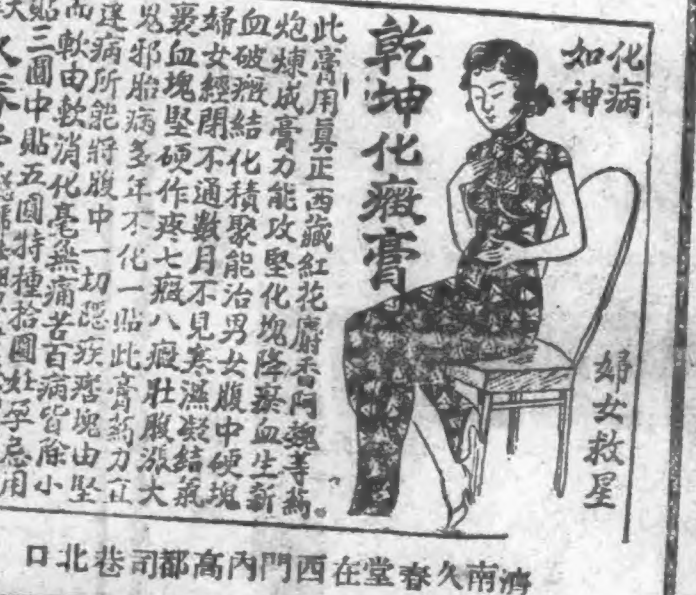 化病
如神
婦女救星
乾坤化癥膏
此膏用眞正西藏紅花麝香阿魏等藥
炮煉成膏力能攻堅化塊降瘀血生新
血破癥結化積聚能治男女腹中硬塊
婦女經閉不通數月不見寒濕凝結氣
裹血塊堅硬作疼七癥八瘕肚腹漲大
鬼邪胎病多年不化一貼此膏藥力正
逐病所能將腹中一切隱疾痞塊由堅
而軟由軟消化毫無痛苦百病皆除小
貼三圓中貼五圓特種拾圓妊孕忌用
濟南久春堂在西門內高都司巷北口